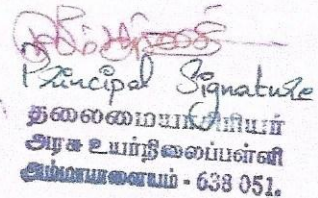 Principal Signature
தலைமையாசிரியர்
அரசு உயர்நிலைப்பள்ளி
அம்மாபாளையம் - 638 051.